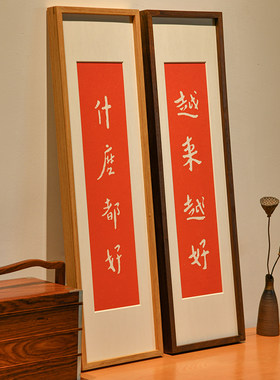 越来越好
什麼都好